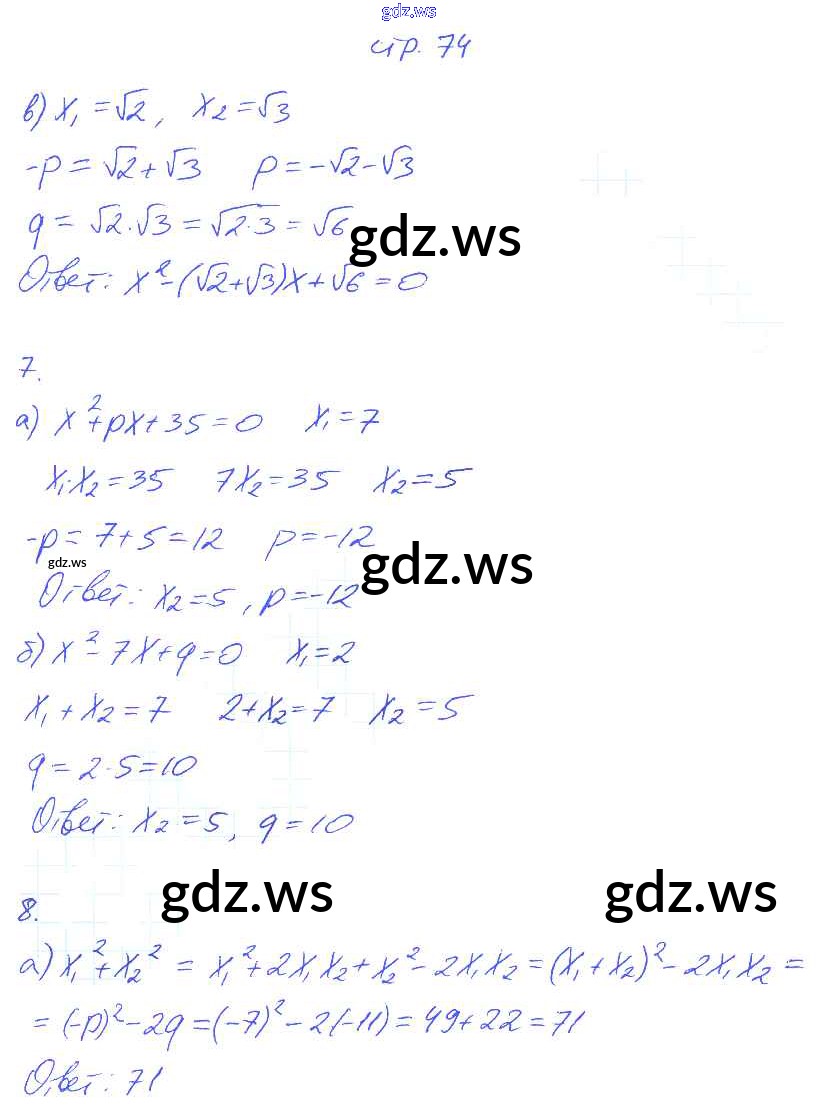 gdz.ws
стр. 74
в) x₁ = √2, x₂ = √3
-p = √2 + √3 p = -√2 - √3
q = √2 · √3 = √2·3 = √6
gdz.ws
Ответ: x² - (√2+√3)x + √6 = 0
7.
а) x² + px + 35 = 0 x₁ = 7
x₁·x₂ = 35 7x₂ = 35 x₂ = 5
-p = 7 + 5 = 12 p = -12
gdz.ws gdz.ws
Ответ: x₂ = 5, p = -12
б) x² - 7x + q = 0 x₁ = 2
x₁ + x₂ = 7 2 + x₂ = 7 x₂ = 5
q = 2·5 = 10
Ответ: x₂ = 5, q = 10
gdz.ws gdz.ws
8.
а) x₁² + x₂² = x₁² + 2x₁x₂ + x₂² - 2x₁x₂ = (x₁ + x₂)² - 2x₁x₂ =
= (-p)² - 2q = (-7)² - 2(-11) = 49 + 22 = 71
Ответ: 71